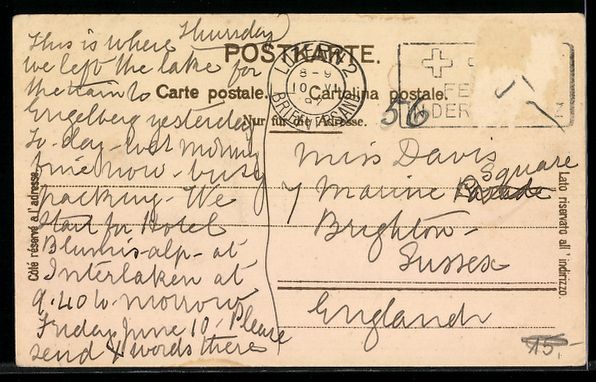 Thursday
This is where
we left the lake for
the train to
Engelberg yesterday
To-day - wet morning
fine now - busy
packing - We
start for Hotel
Blumis-alp - at
Interlaken at
9.40 to-morrow
Friday June 10. Please
send & words there
POSTKARTE.
Carte postale.
Cartolina postale.
Nur für die Adresse.
LUZERN 2
8-9
10. VI.
BRIEFTRÄGER
56
FE
NDER
Miss Davis
7 Marine Square
Brighton -
Sussex
England
Côté réservé à l'adresse.
Lato riservato all' indirizzo.
15.-